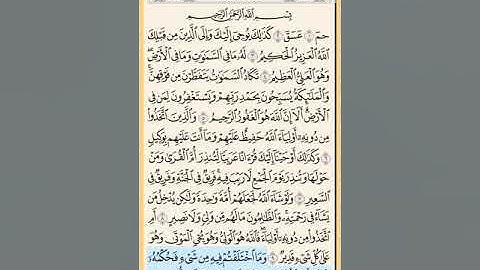 بِسْمِ اللَّهِ الرَّحْمَٰنِ الرَّحِيمِ
حمٓ ١ عٓسٓقٓ ٢ كَذَٰلِكَ يُوحِىٓ إِلَيْكَ وَإِلَى ٱلَّذِينَ مِن قَبْلِكَ
ٱللَّهُ ٱلْعَزِيزُ ٱلْحَكِيمُ ٣ لَهُۥ مَا فِى ٱلسَّمَٰوَٰتِ وَمَا فِى ٱلْأَرْضِ
وَهُوَ ٱلْعَلِىُّ ٱلْعَظِيمُ ٤ تَكَادُ ٱلسَّمَٰوَٰتُ يَتَفَطَّرْنَ مِن فَوْقِهِنَّ
وَٱلْمَلَٰٓئِكَةُ يُسَبِّحُونَ بِحَمْدِ رَبِّهِمْ وَيَسْتَغْفِرُونَ لِمَن فِى
ٱلْأَرْضِ أَلَآ إِنَّ ٱللَّهَ هُوَ ٱلْغَفُورُ ٱلرَّحِيمُ ٥ وَٱلَّذِينَ ٱتَّخَذُوا۟
مِن دُونِهِۦٓ أَوْلِيَآءَ ٱللَّهُ حَفِيظٌ عَلَيْهِمْ وَمَآ أَنتَ عَلَيْهِم بِوَكِيلٍ
٦ وَكَذَٰلِكَ أَوْحَيْنَآ إِلَيْكَ قُرْءَانًا عَرَبِيًّا لِّتُنذِرَ أُمَّ ٱلْقُرَىٰ وَمَنْ
حَوْلَهَا وَتُنذِرَ يَوْمَ ٱلْجَمْعِ لَا رَيْبَ فِيهِ فَرِيقٌ فِى ٱلْجَنَّةِ وَفَرِيقٌ فِى
ٱلسَّعِيرِ ٧ وَلَوْ شَآءَ ٱللَّهُ لَجَعَلَهُمْ أُمَّةً وَٰحِدَةً وَلَٰكِن يُدْخِلُ مَن
يَشَآءُ فِى رَحْمَتِهِۦ وَٱلظَّٰلِمُونَ مَا لَهُم مِّن وَلِىٍّ وَلَا نَصِيرٍ ٨ أَمِ
ٱتَّخَذُوا۟ مِن دُونِهِۦٓ أَوْلِيَآءَ فَٱللَّهُ هُوَ ٱلْوَلِىُّ وَهُوَ يُحْىِ ٱلْمَوْتَىٰ وَهُوَ
عَلَىٰ كُلِّ شَىْءٍ قَدِيرٌ ٩ وَمَا ٱخْتَلَفْتُمْ فِيهِ مِن شَىْءٍ فَحُكْمُهُۥٓ